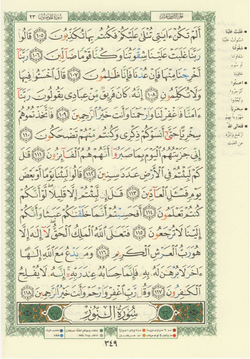 أَلَمْ تَكُنْ ءَايَٰتِى تُتْلَىٰ عَلَيْكُمْ فَكُنتُم بِهَا تُكَذِّبُونَ ﴿١٠٥﴾ قَالُوا۟
رَبَّنَا غَلَبَتْ عَلَيْنَا شِقْوَتُنَا وَكُنَّا قَوْمًا ضَآلِّينَ ﴿١٠٦﴾ رَبَّنَآ
أَخْرِجْنَا مِنْهَا فَإِنْ عُدْنَا فَإِنَّا ظَٰلِمُونَ ﴿١٠٧﴾ قَالَ ٱخْسَـُٔوا۟ فِيهَا
وَلَا تُكَلِّمُونِ ﴿١٠٨﴾ إِنَّهُۥ كَانَ فَرِيقٌ مِّنْ عِبَادِى يَقُولُونَ رَبَّنَآ
ءَامَنَّا فَٱغْفِرْ لَنَا وَٱرْحَمْنَا وَأَنتَ خَيْرُ ٱلرَّٰحِمِينَ ﴿١٠٩﴾ فَٱتَّخَذْتُمُوهُمْ
سِخْرِيًّا حَتَّىٰٓ أَنسَوْكُمْ ذِكْرِى وَكُنتُم مِّنْهُمْ تَضْحَكُونَ ﴿١١٠﴾
إِنِّى جَزَيْتُهُمُ ٱلْيَوْمَ بِمَا صَبَرُوٓا۟ أَنَّهُمْ هُمُ ٱلْفَآئِزُونَ ﴿١١١﴾ قَٰلَ
كَمْ لَبِثْتُمْ فِى ٱلْأَرْضِ عَدَدَ سِنِينَ ﴿١١٢﴾ قَالُوا۟ لَبِثْنَا يَوْمًا أَوْ بَعْضَ
يَوْمٍ فَسْـَٔلِ ٱلْعَآدِّينَ ﴿١١٣﴾ قَٰلَ إِن لَّبِثْتُمْ إِلَّا قَلِيلًا لَّوْ أَنَّكُمْ
كُنتُمْ تَعْلَمُونَ ﴿١١٤﴾ أَفَحَسِبْتُمْ أَنَّمَا خَلَقْنَٰكُمْ عَبَثًا وَأَنَّكُمْ
إِلَيْنَا لَا تُرْجَعُونَ ﴿١١٥﴾ فَتَعَٰلَى ٱللَّهُ ٱلْمَلِكُ ٱلْحَقُّ لَآ إِلَٰهَ إِلَّا
هُوَ رَبُّ ٱلْعَرْشِ ٱلْكَرِيمِ ﴿١١٦﴾ وَمَن يَدْعُ مَعَ ٱللَّهِ إِلَٰهًا
ءَاخَرَ لَا بُرْهَٰنَ لَهُۥ بِهِۦ فَإِنَّمَا حِسَابُهُۥ عِندَ رَبِّهِۦٓ إِنَّهُۥ لَا يُفْلِحُ
ٱلْكَٰفِرُونَ ﴿١١٧﴾ وَقُل رَّبِّ ٱغْفِرْ وَٱرْحَمْ وَأَنتَ خَيْرُ ٱلرَّٰحِمِينَ ﴿١١٨﴾
سُورَةُ النُّورِ
٣٤٩